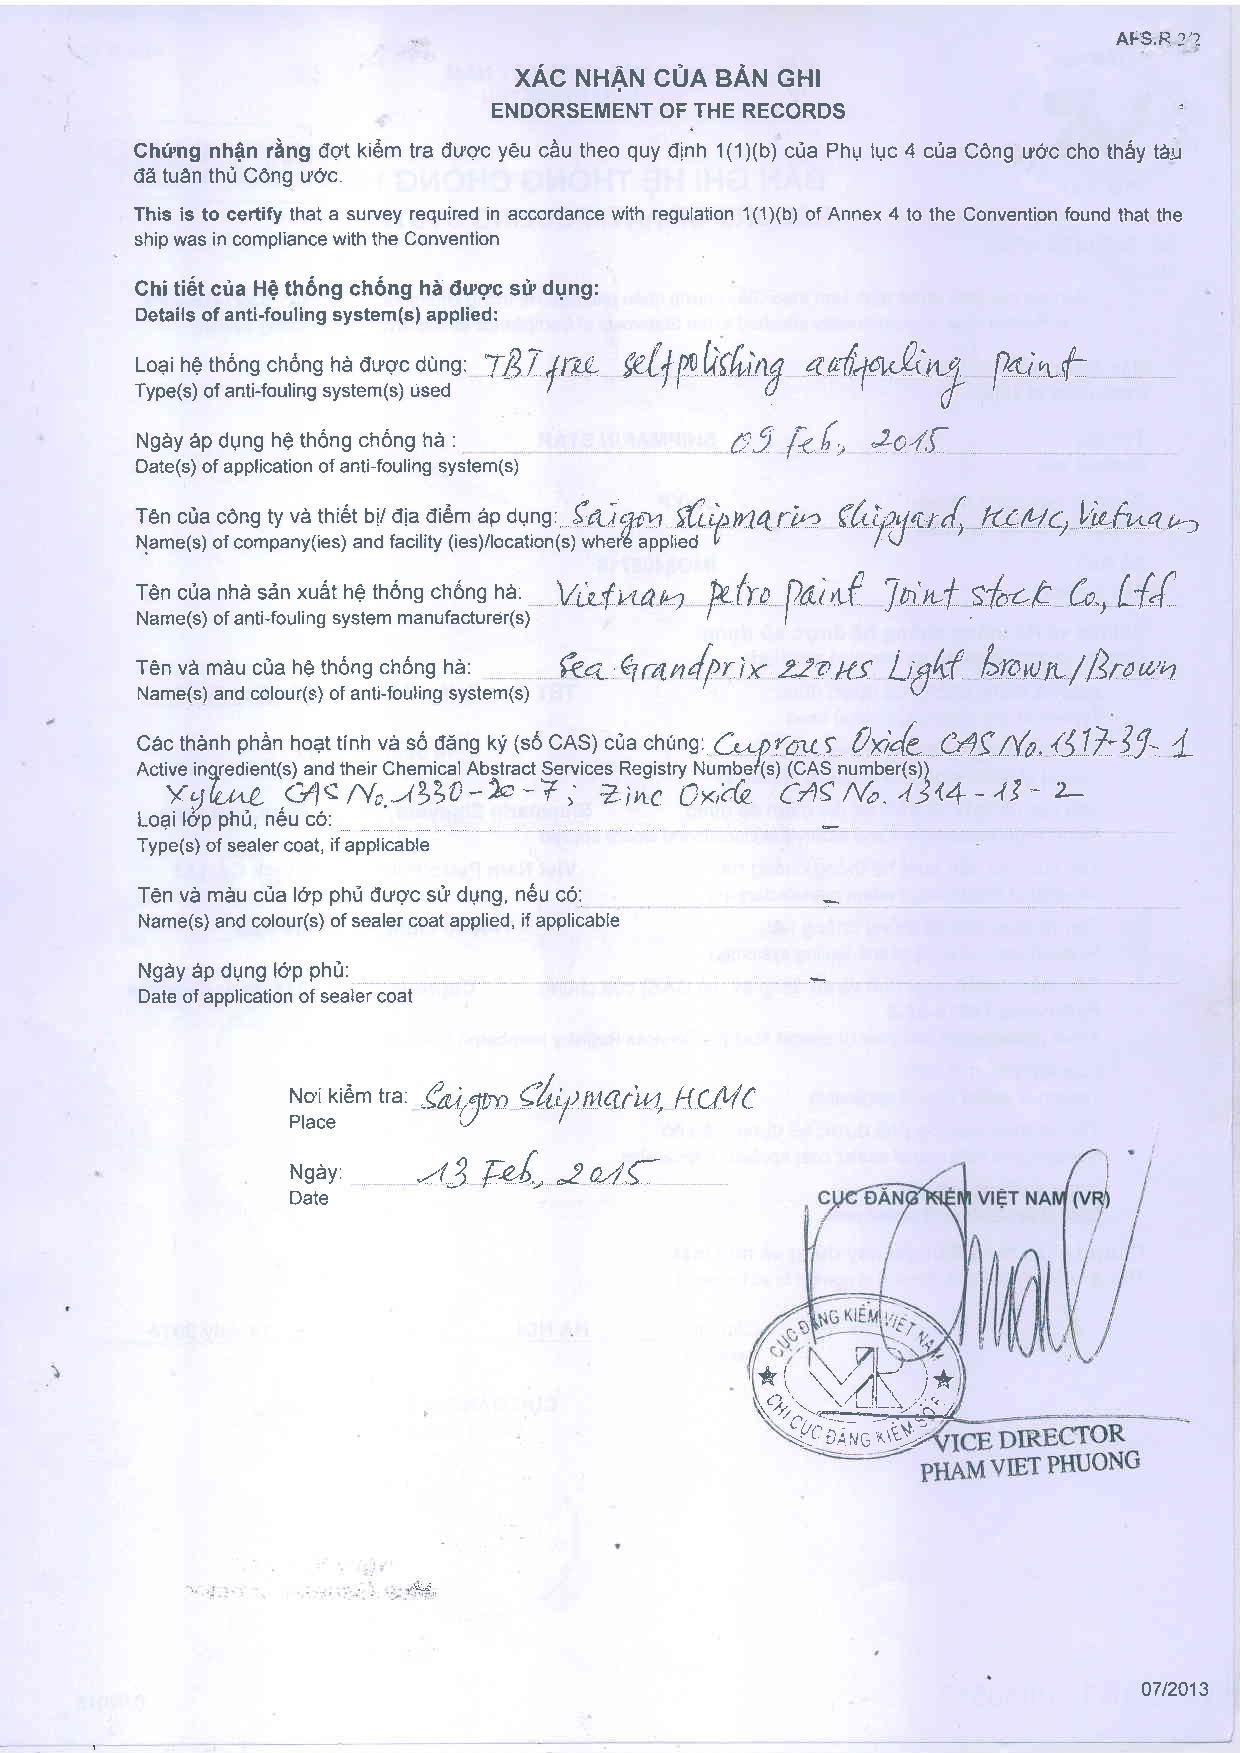 AFS.R 2/2
XÁC NHẬN CỦA BẢN GHI
ENDORSEMENT OF THE RECORDS
Chứng nhận rằng đợt kiểm tra được yêu cầu theo quy định 1(1)(b) của Phụ lục 4 của Công ước cho thấy tàu
đã tuân thủ Công ước.
This is to certify that a survey required in accordance with regulation 1(1)(b) of Annex 4 to the Convention found that the
ship was in compliance with the Convention
Chi tiết của Hệ thống chống hà được sử dụng:
Details of anti-fouling system(s) applied:
Loại hệ thống chống hà được dùng: TBT free selfpolishing antifouling paint
Type(s) of anti-fouling system(s) used
Ngày áp dụng hệ thống chống hà : 09 Feb., 2015
Date(s) of application of anti-fouling system(s)
Tên của công ty và thiết bị/ địa điểm áp dụng: Saigon Shipmarin Shipyard, HCMC, Vietnam
Name(s) of company(ies) and facility (ies)/location(s) where applied
Tên của nhà sản xuất hệ thống chống hà: Vietnam petro paint Joint stock Co., Ltd
Name(s) of anti-fouling system manufacturer(s)
Tên và màu của hệ thống chống hà: Sea Grandprix 220HS Light brown/Brown
Name(s) and colour(s) of anti-fouling system(s)
Các thành phần hoạt tính và số đăng ký (số CAS) của chúng: Cuprous Oxide CAS No. 1317-39-1
Active ingredient(s) and their Chemical Abstract Services Registry Number(s) (CAS number(s))
Xylene CAS No. 1330-20-7; Zinc Oxide CAS No. 1314-13-2
Loại lớp phủ, nếu có: -
Type(s) of sealer coat, if applicable
Tên và màu của lớp phủ được sử dụng, nếu có: -
Name(s) and colour(s) of sealer coat applied, if applicable
Ngày áp dụng lớp phủ: -
Date of application of sealer coat
Nơi kiểm tra: Saigon Shipmarin, HCMC
Place
Ngày: 13 Feb., 2015
Date
CỤC ĐĂNG KIỂM VIỆT NAM (VR)
CỤC ĐĂNG KIỂM VIỆT NAM
VR
CHI CỤC ĐĂNG KIỂM SỐ 6
VICE DIRECTOR
PHAM VIET PHUONG
07/2013